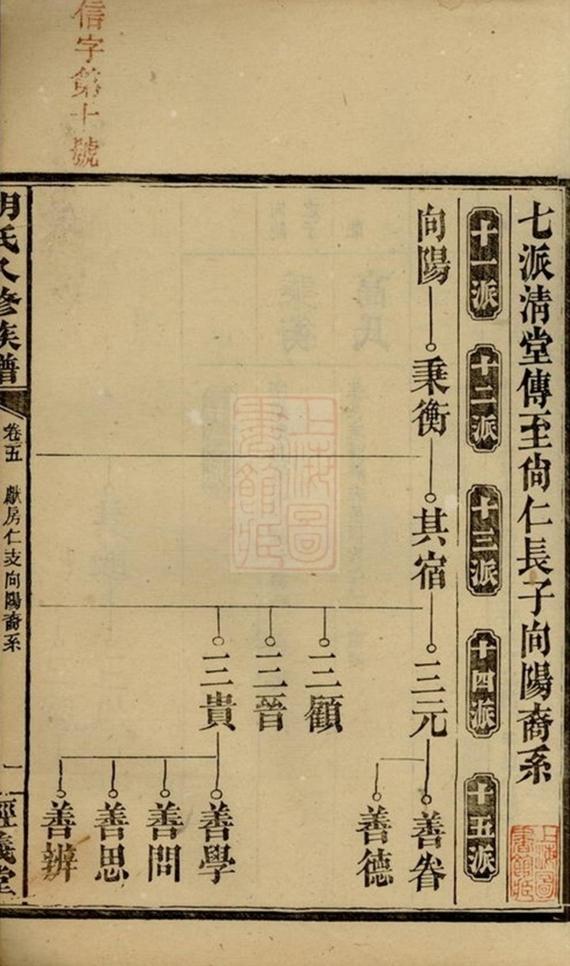 信字第十號
七派清堂傳至尙仁長子向陽裔系
十一派
十二派
十三派
十四派
十五派
向陽
秉衡
其宿
三元
三顧
三晉
三貴
善眷
善德
善學
善問
善思
善辨
胡氏八修族譜
卷五
獻房仁支向陽裔系
一
經義堂
上海圖書館藏
上海圖書館藏